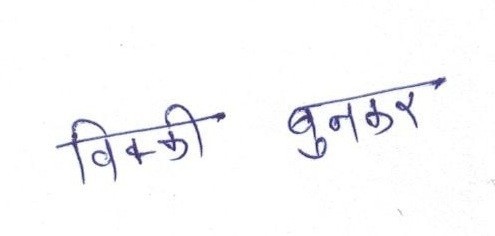 विक्की बुनकर